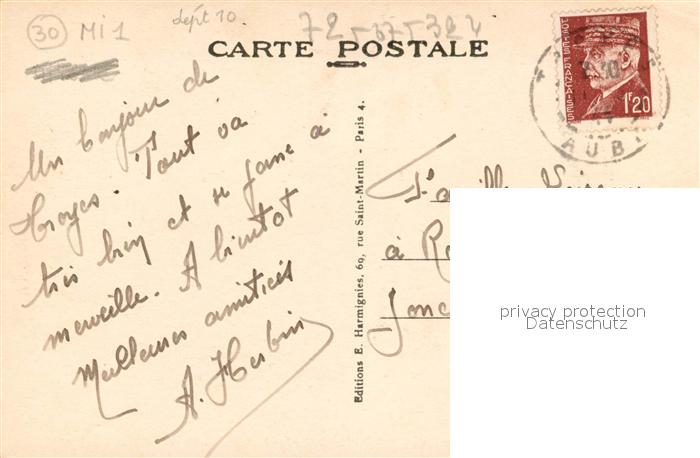 30 MI 1
sept 10
72-575-324
CARTE POSTALE
POSTES FRANÇAISES
1F20
AUBE
Un bonjour de
Troyes. Tout va
très bien et se passe à
merveille. A bientot
Meilleures amitiés
A. Herbin
Editions E. Harmignies, 60, rue Saint-Martin - Paris 4.
Famille
à
Jonc
privacy protection
Datenschutz